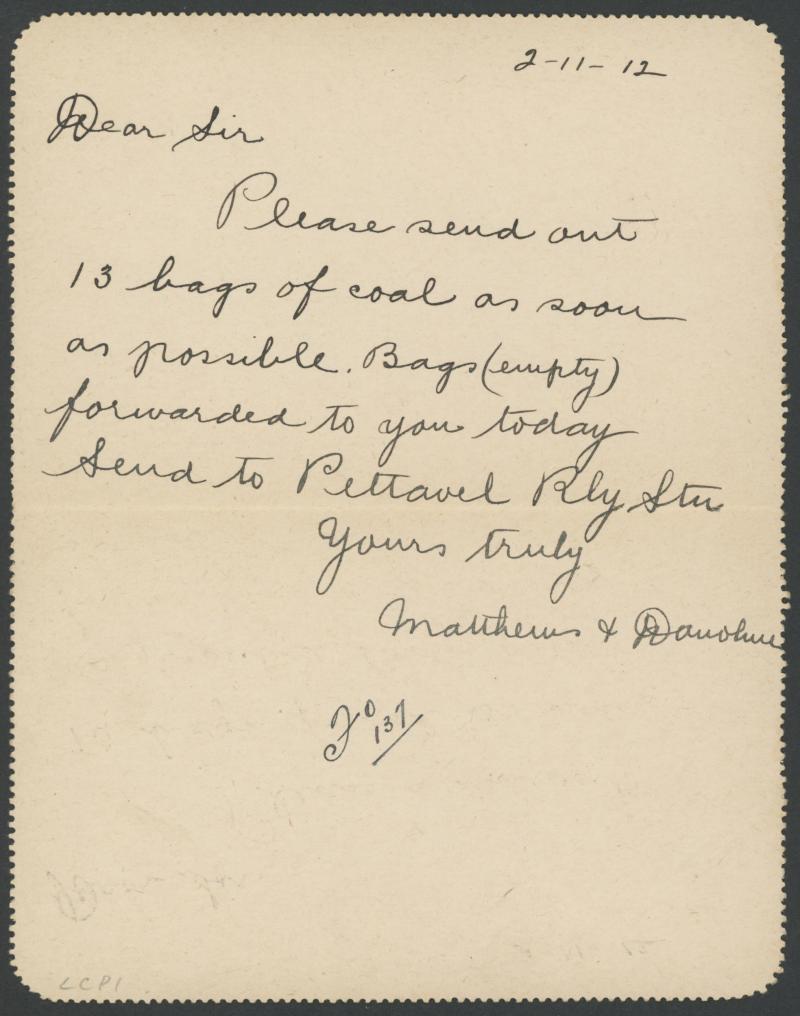 2-11-12
Dear Sir
Please send out
13 bags of coal as soon
as possible. Bags (empty)
forwarded to you today
Send to Pettavel Rly Stn
Yours truly
Matthews &
Fo 137/
LCP1